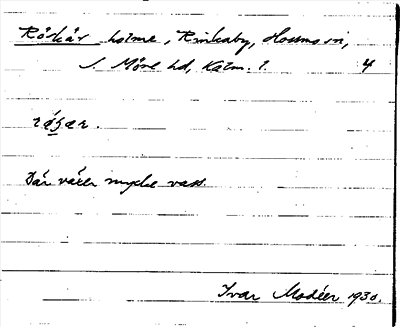 Rörkär holme, Rinkaby, Hossmo sn,
S. Möre hd, Kalm. l. 4
Där växer mycke vass.
Ivar Modéer 1930.